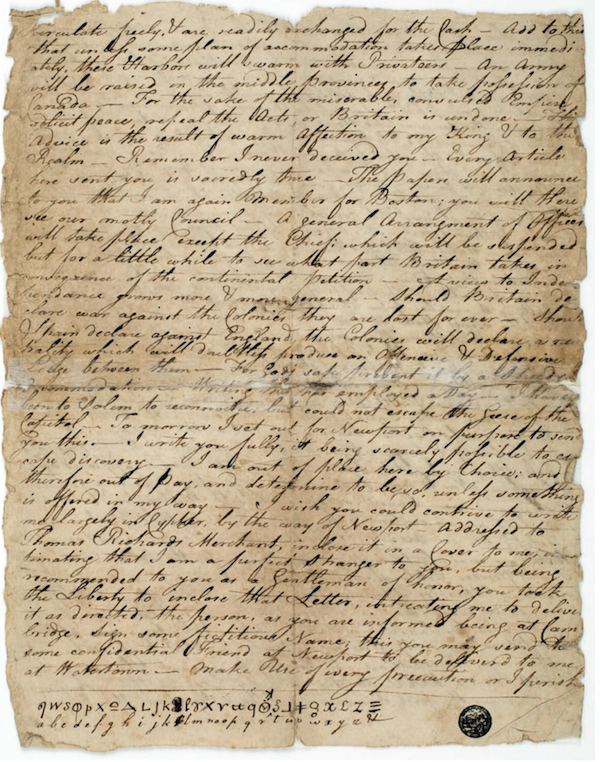 circulate freely, & are readily exchanged for the Cash — Add to this
that unless some plan of accommodation takes place immedi
ately, these Harbors will swarm with Privateers — An Army
will be raised in the middle Provinces, to take possession of
Canada — For the sake of the miserable, convulsed Empire,
solicit peace, repeal the Acts, or Britain is undone — This
Advice is the result of warm Affection to my King & to the
Realm — Remember I never deceived you — Every Article
here sent you is sacredly true — The Papers will announce
to you that I am again Member for Boston; you will there
see our motly Council — A general Arrangment of Offices
will take place, except the Chief; which will be suspended
but for a little while to see what part Britain takes, in
consequence of the continental Petition — A view to Inde-
pendance grows more & more general — Should Britain de-
clare war against the Colonies they are lost for ever — Should
Spain declare against England, the Colonies will declare a neu-
trality which will doubtless produce an Offensive & Defensive
League between them — For Gods sake prevent it by a
accommodation — Writing this has employed a Day — I have
been to Salem to reconnoitre, but could not escape the Geese of the
Capitol — To morrow I set out for Newport on purpose to send
you this. — I write you fully, it being scarcely possible to es-
cape discovery — I am out of place here by choice; and
therefore out of Pay, and determine to be so, unless something
is offered in my way — I wish you could contrive to write
me largely in Cypher, by the way of Newport — Addressed to
Thomas Richards Merchant, inclose it in a Cover to me,
timating that I am a perfect stranger to you, but being
recommended to you as a Gentleman of honor, you took
the Liberty to inclose that Letter, intreating me to deliver
it as directed, the person, as you are informed being at Cam
bridge, Sign some fictitious Name, this you may send to
some confidential Friend at Newport to be deliverd to me,
at Watertown — Make Use of every precaution or I perish
a b c d e f g h i j k l m n o e p q r s t u v w x y z &